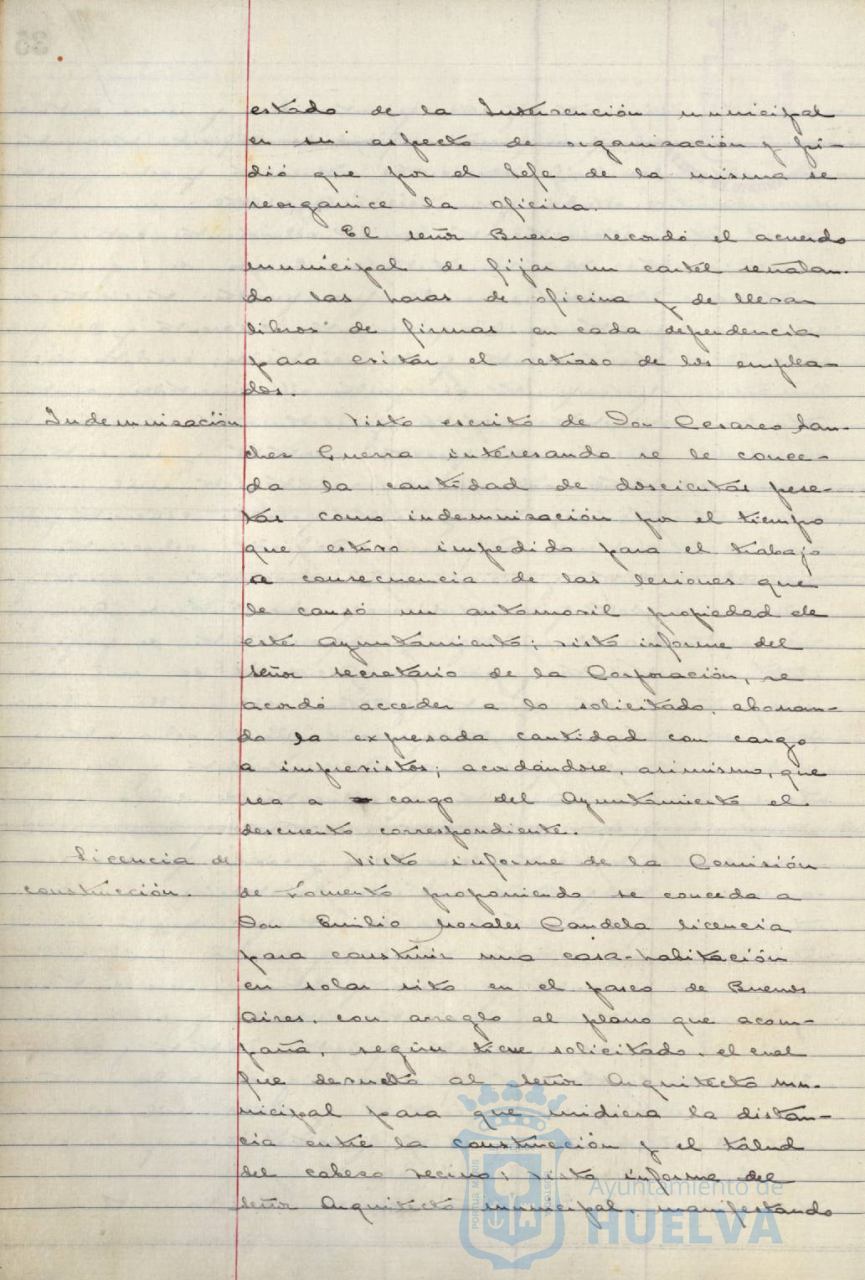 estado de la Intervención municipal
en su aspecto de organización y pi-
dió que por el Jefe de la misma se
reorganice la oficina.
El señor Bueno recordó el acuerdo
municipal de fijar un cartel señalan-
do las horas de oficina y de llevar
libros de firmas en cada dependencia
para evitar el retraso de los emplea-
dos.
Indemnización
Visto escrito de Don Cesareo San-
chez Guerra interesando se le conce-
da la cantidad de doscientas pese-
tas como indemnización por el tiempo
que estuvo impedido para el trabajo
a consecuencia de las lesiones que
le causó un automovil propiedad de
este Ayuntamiento; visto informe del
señor secretario de la Corporación, se
acordó acceder a lo solicitado, abonan-
do la expresada cantidad con cargo
a imprevistos; acordándose, asimismo, que
sea a cargo del Ayuntamiento el
descuento correspondiente.
Licencia de
construcción.
Visto informe de la Comisión
de Fomento proponiendo se conceda a
Don Emilio Morales Candela licencia
para construir una casa-habitación
en solar sito en el paseo de Buenos
Aires, con arreglo al plano que acom-
paña, según tiene solicitado, el cual
fue devuelto al señor Arquitecto mu-
nicipal para que midiera la distan-
cia entre la construcción y el talud
del cabezo vecino; visto informe del
señor Arquitecto municipal, manifestando
Ayuntamiento de
HUELVA